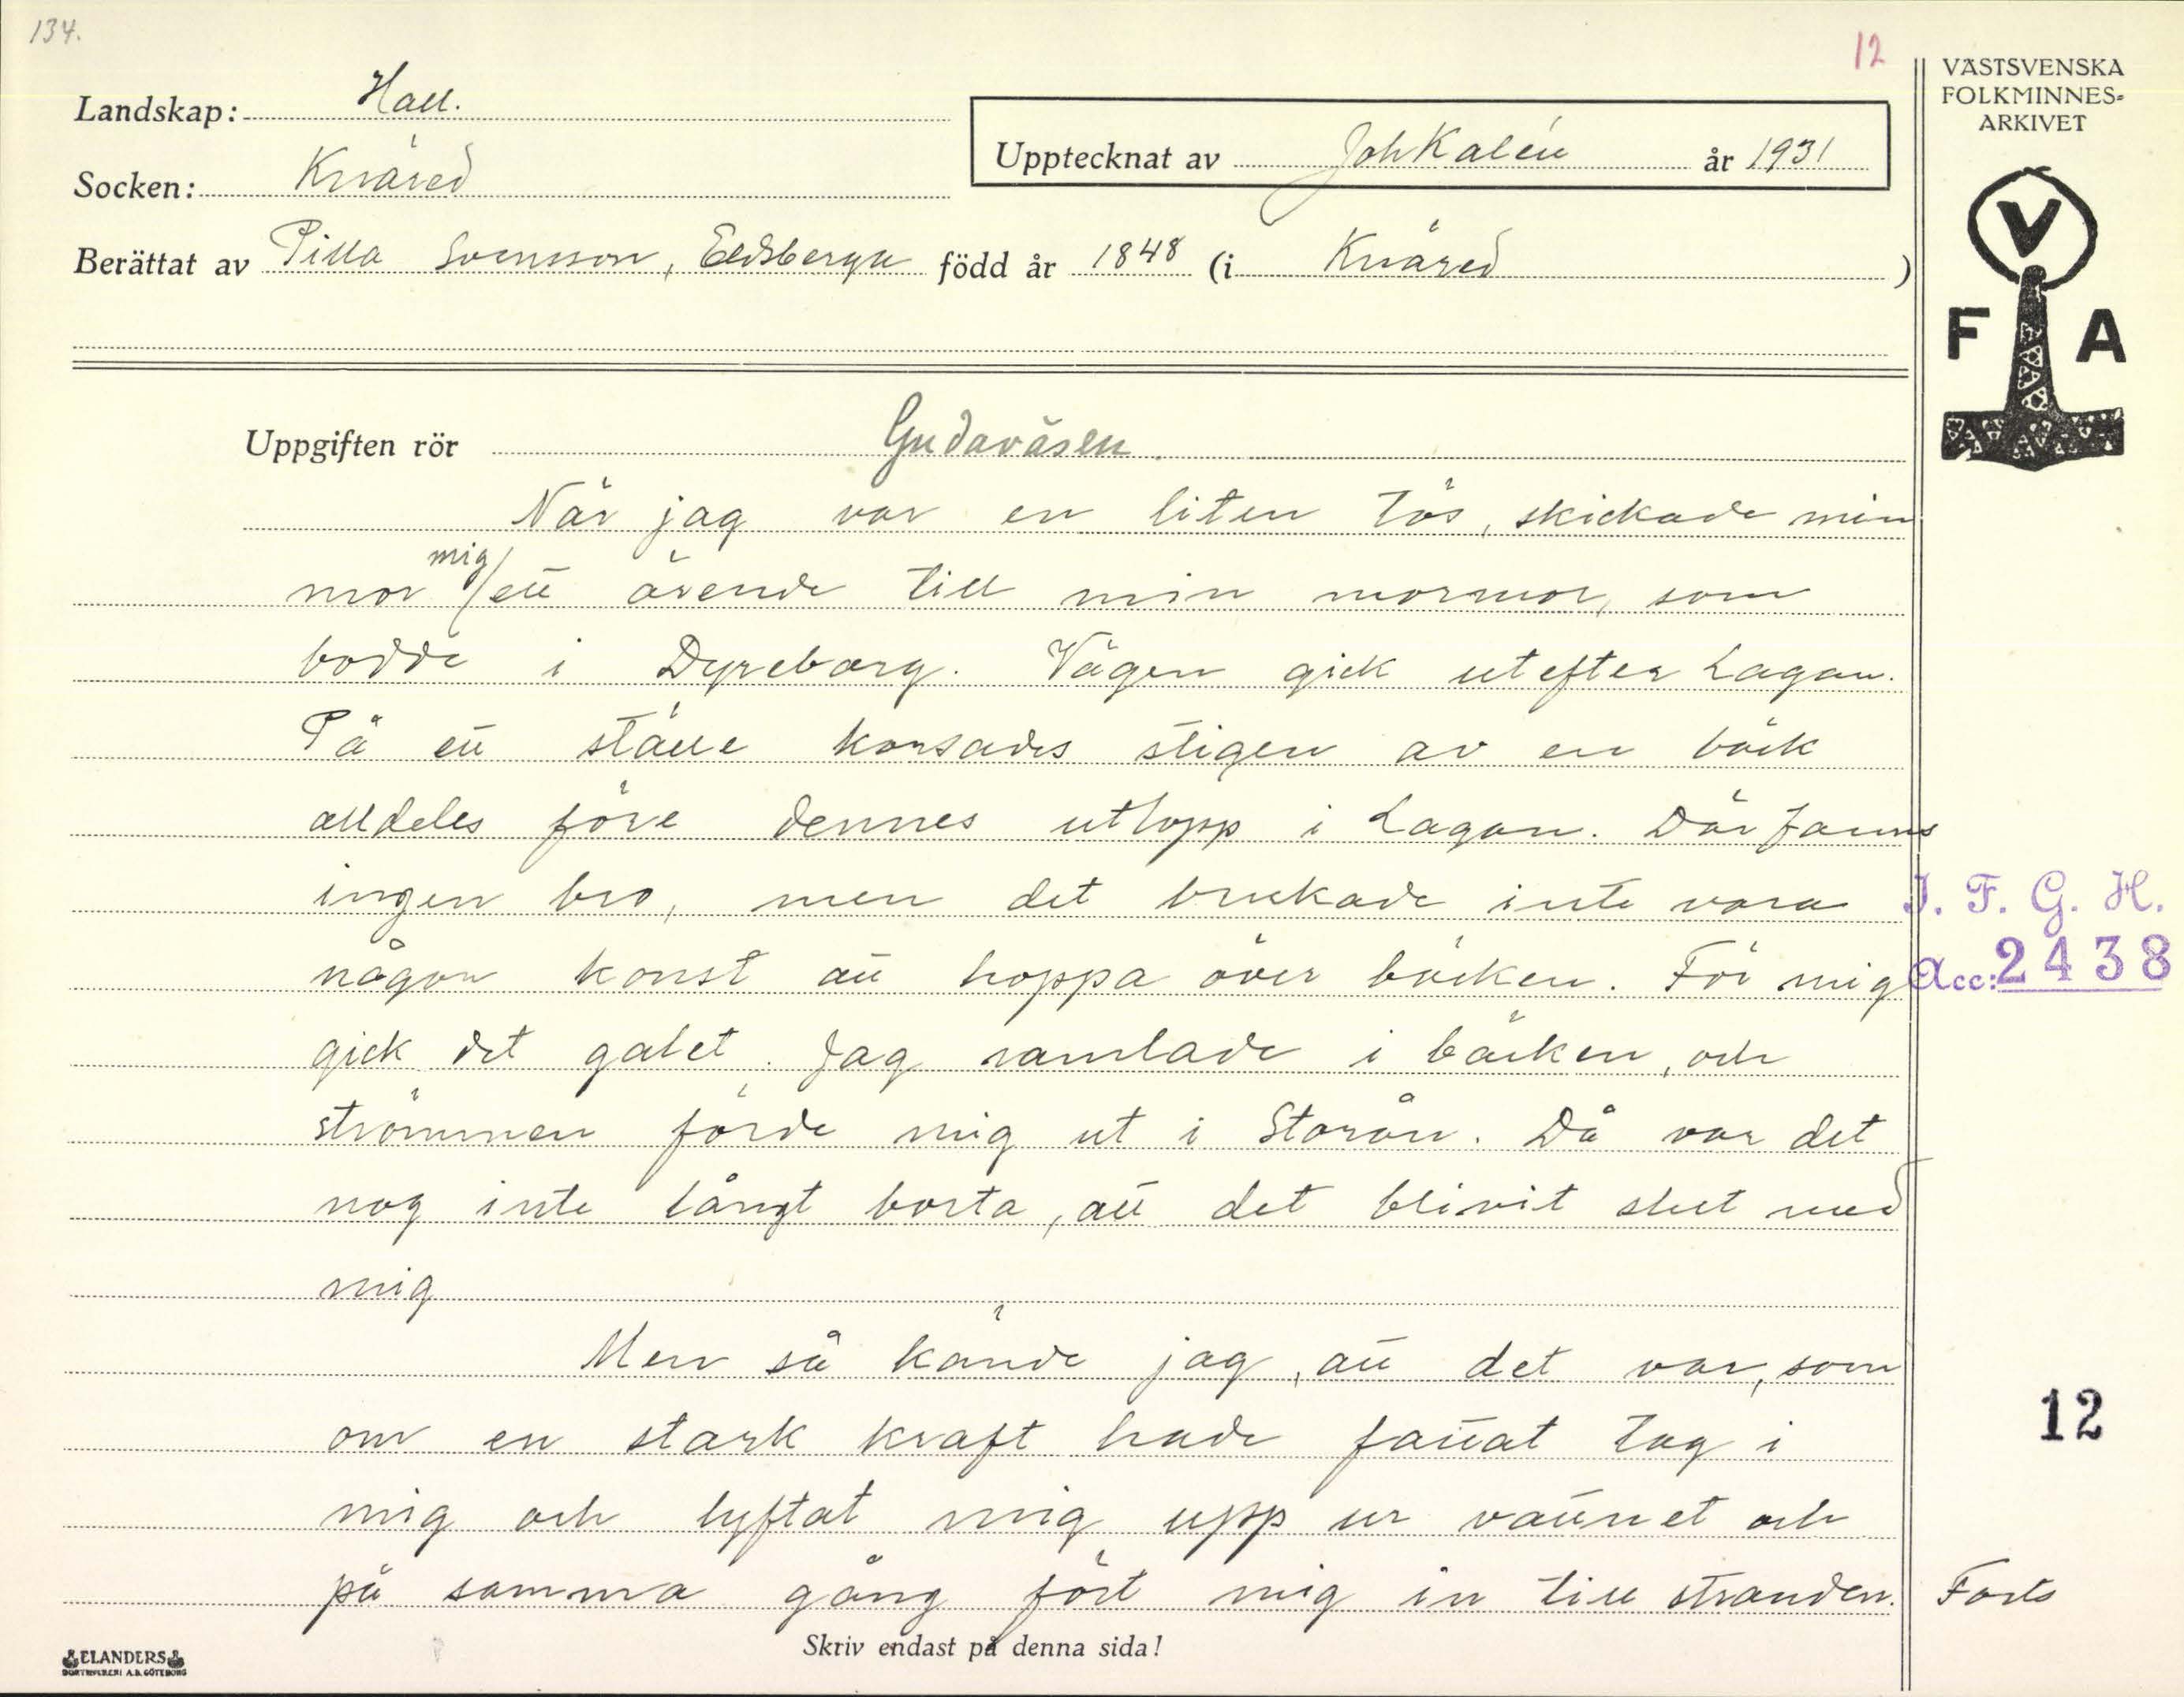 134.
12
VÄSTSVENSKA
FOLKMINNES-
ARKIVET
Landskap: Hall.
Upptecknat av Joh Kalén år 1931
Socken: Knäred
Berättat av Pilla Svensson, Eldsberga född år 1848 (i Knäred)
V
F A
Uppgiften rör Gudaväsen
När jag var en liten tös, skickade min
mor mig ett ärende till min mormor, som
bodde i Dyreborg. Vägen gick utefter Lagan.
På ett ställe korsades stigen av en bäck
alldeles före dennes utlopp i Lagan. Där fanns
ingen bro, men det brukade inte vara
någon konst att hoppa över bäcken. För mig
gick det galet. Jag ramlade i bäcken, och
strömmen förde mig ut i Storån. Då var det
nog inte långt borta, att det blivit slut med
mig
Men så kände jag, att det var, som
om en stark kraft hade fattat tag i
mig och lyftat mig upp ur vattnet och
på samma gång fört mig in till stranden.
I. F. G. H.
Acc: 2438
12
Forts
Skriv endast på denna sida!
ELANDERS
BOKTRYCKERI A.B. GÖTEBORG